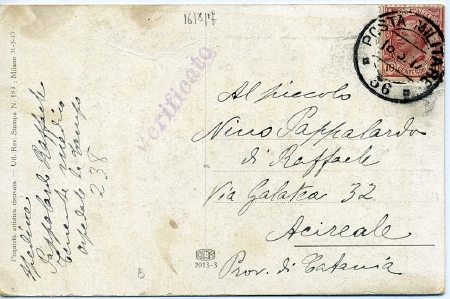 16/8/17
POSTA MILITARE
36
Verificato
Al piccolo
Nino Pappalardo
di Raffaele
Via Galatea 32
Acireale
Prov. di Catania
Pappalardo Raffaele
Tenente medico
ospedale da campo
238
Proprietà artistica riservata. - Uff. Rev. Stampa N. 183 - Milano 31-3-17
2013-3
B